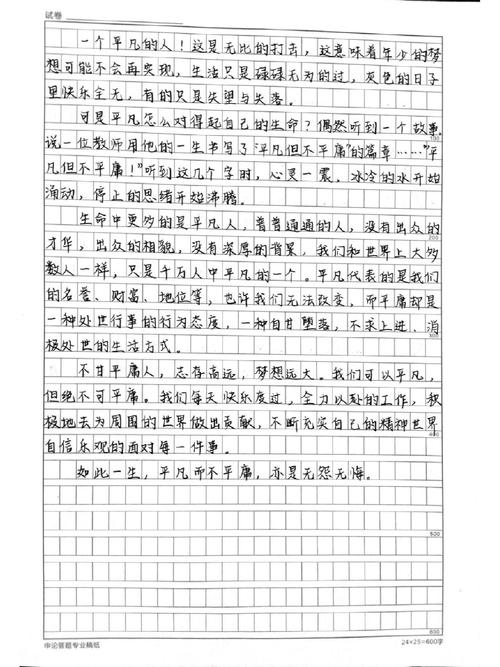 试卷
一个平凡的人！这是无比的打击，这意味着年少的梦
想可能不会再实现，生活只是碌碌无为的过，灰色的日子
里快乐全无，有的只是失望与失落。
可是平凡怎么对得起自己的生命？偶然听到一个故事，
说一位教师用他的一生书写了"平凡但不平庸"的篇章……"平
凡但不平庸！"听到这几个字时，心灵一震，冰冷的水开始
涌动，停止的思绪开始沸腾。
生命中更多的是平凡人，普普通通的人，没有出众的
才华，出众的相貌，没有深厚的背景，我们和世界上大多
数人一样，只是千万人中平凡的一个。平凡代表的是我们
的名誉、财富、地位等，也许我们无法改变，而平庸却是
一种处世行事的行为态度，一种自甘堕落，不求上进、消
极处世的生活方式。
不甘平庸人，志存高远，梦想远大。我们可以平凡，
但绝不可平庸。我们每天快乐度过，全力以赴的工作，积
极地去为周围的世界做出贡献，不断充实自己的精神世界
自信乐观的面对每一件事。
如此一生，平凡而不平庸，亦是无怨无悔。
100
200
300
400
500
600
申论答题专业稿纸
24×25=600字